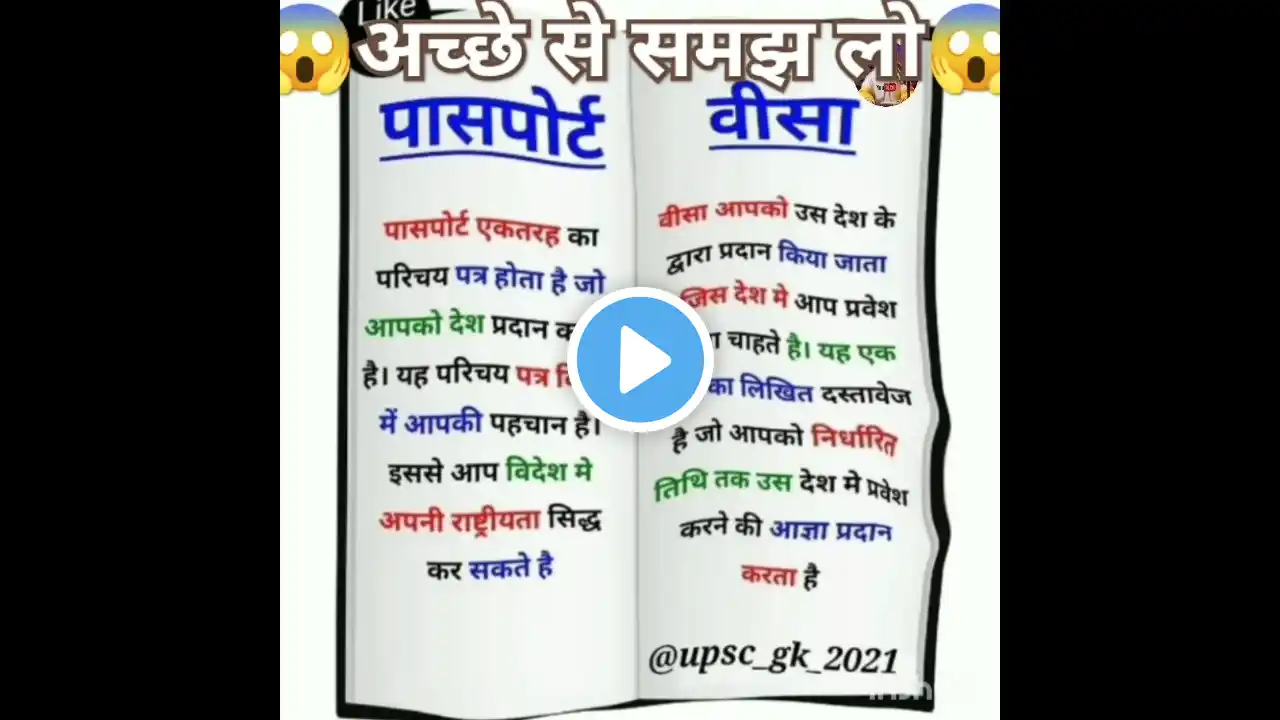 Like
अच्छे से समझ लो
पासपोर्ट
पासपोर्ट एकतरह का
परिचय पत्र होता है जो
आपको देश प्रदान
है। यह परिचय पत्र
में आपकी पहचान है।
इससे आप विदेश मे
अपनी राष्ट्रीयता सिद्ध
कर सकते है
वीसा
वीसा आपको उस देश के
द्वारा प्रदान किया जाता
जिस देश मे आप प्रवेश
चाहते है। यह एक
का लिखित दस्तावेज
है जो आपको निर्धारित
तिथि तक उस देश मे प्रवेश
करने की आज्ञा प्रदान
करता है
@upsc_gk_2021